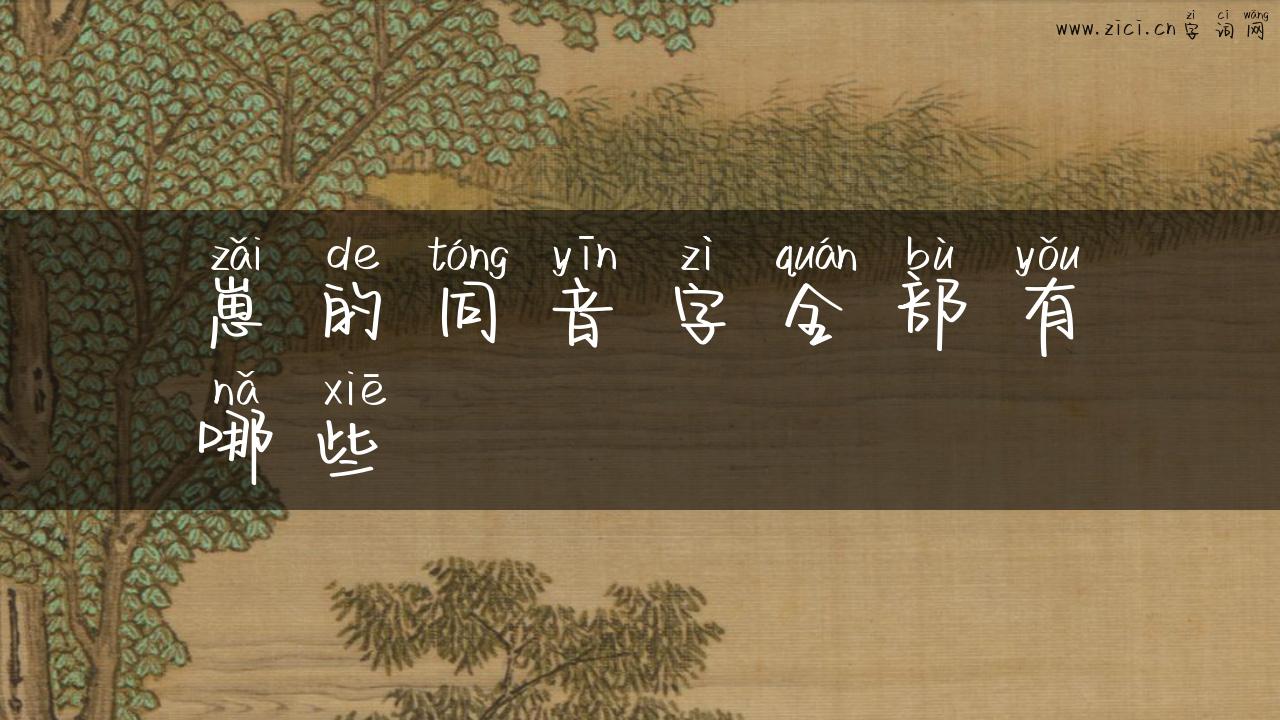 zì cí wǎng
www.zici.cn字词网
zǎi de tóng yīn zì quán bù yǒu
崽的同音字全部有
nǎ xiē
哪些